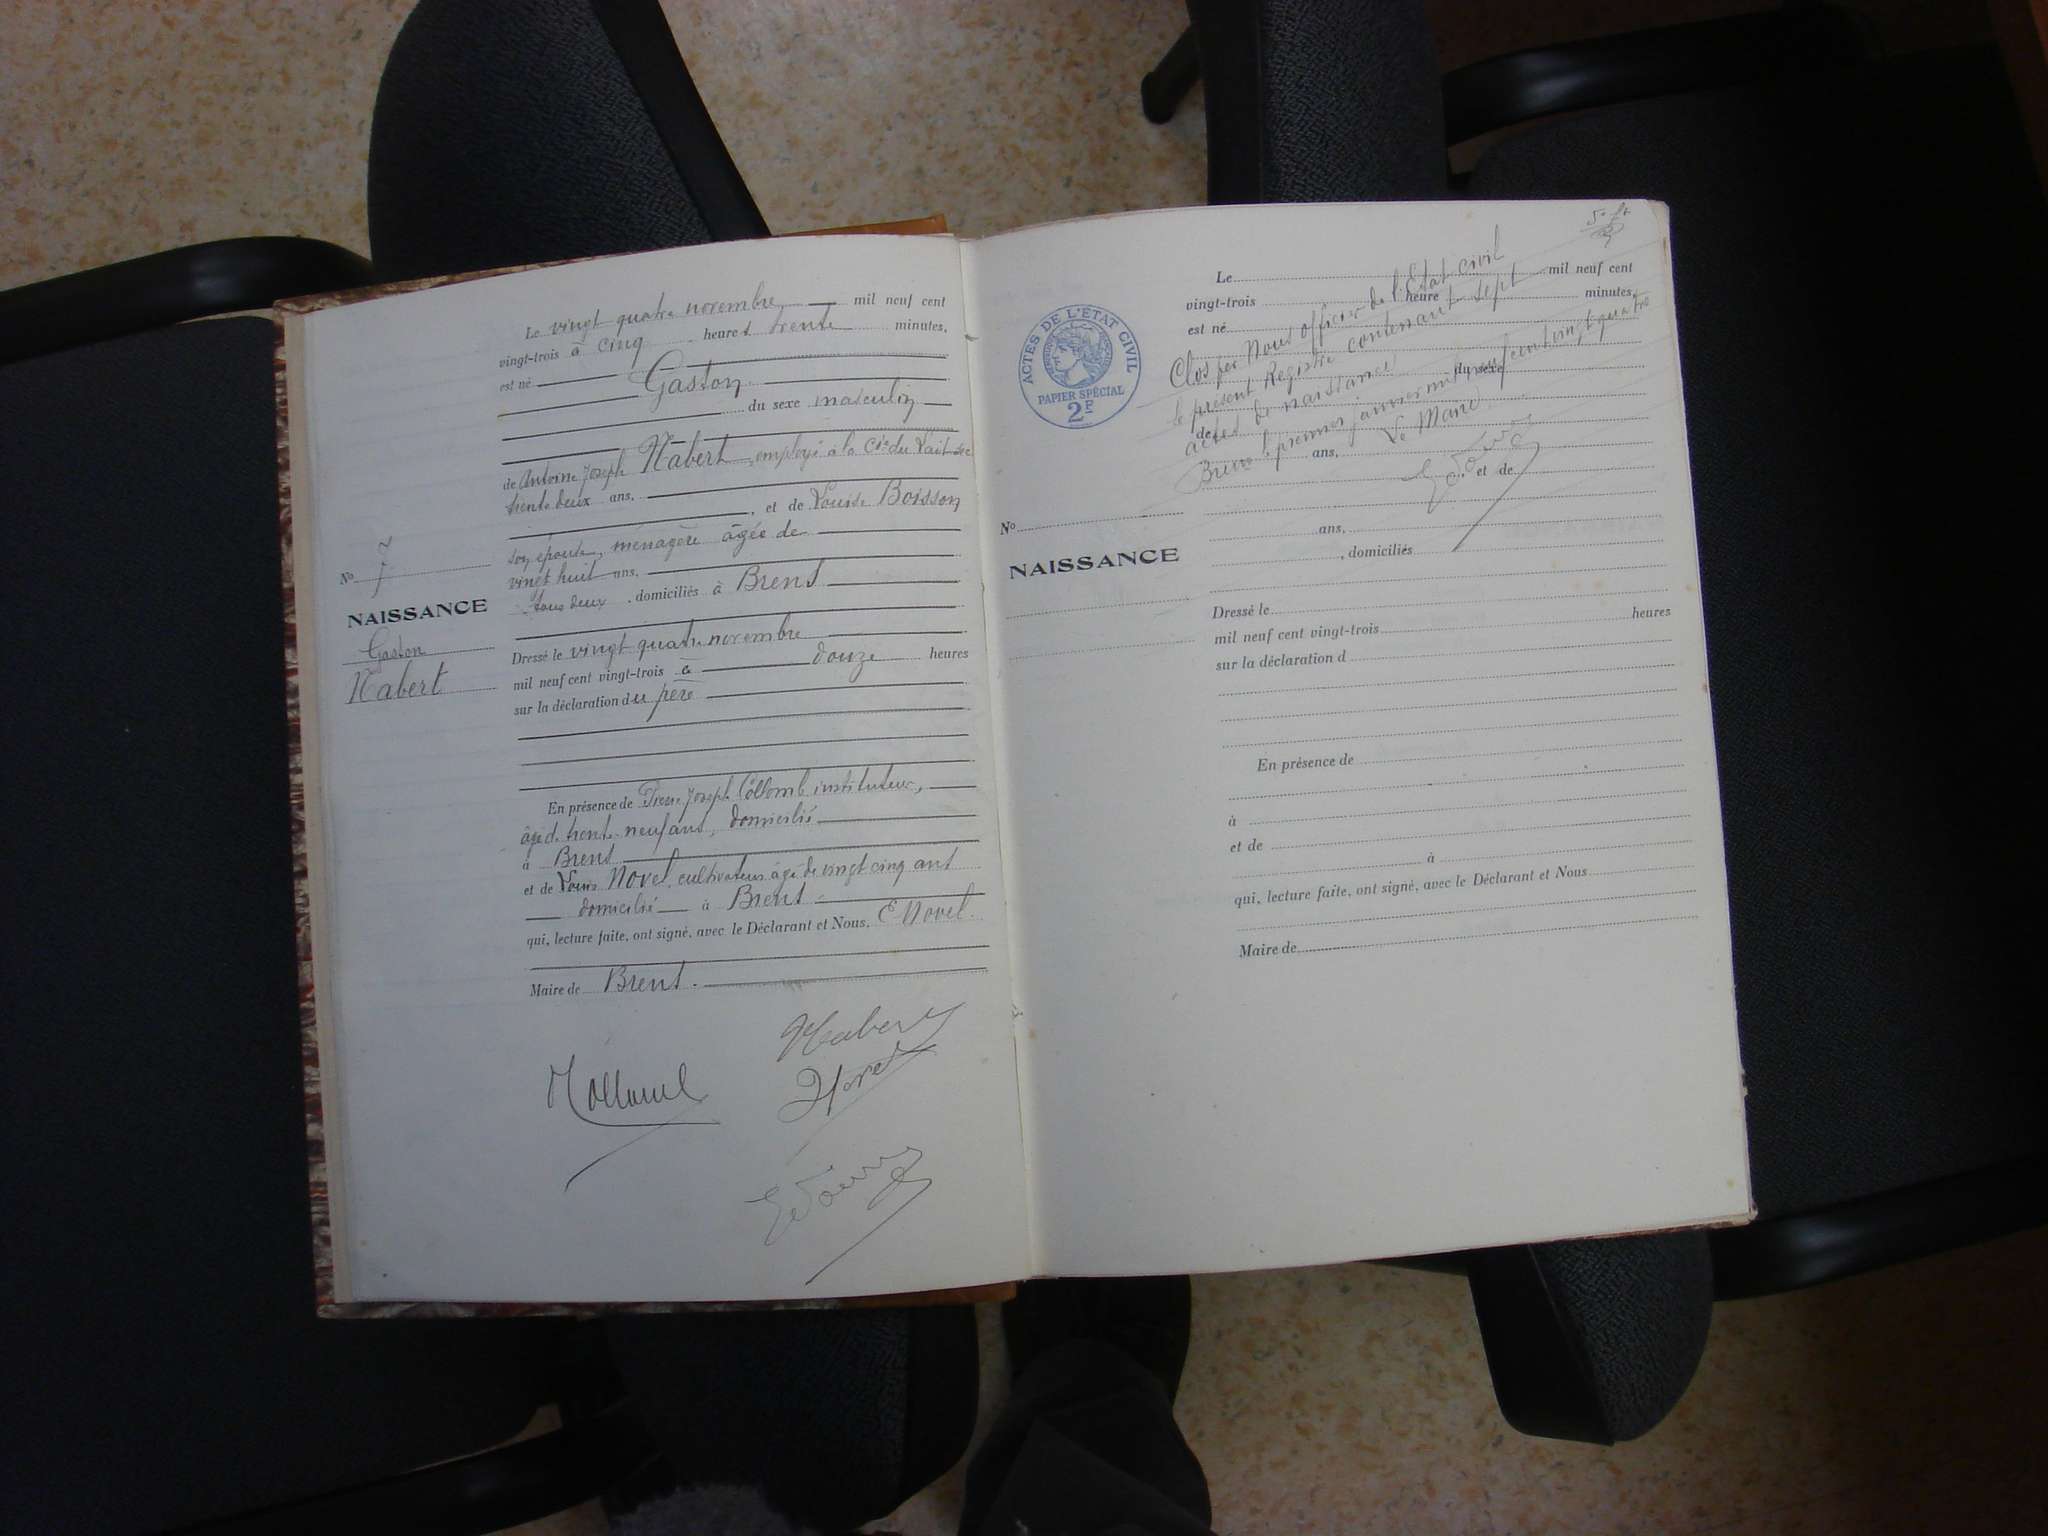 Le vingt quatre novembre mil neuf cent
vingt-trois à cinq heures trente minutes,
est né
Gaston
du sexe masculin
de Antoine Joseph Nabert, employé à la Cie du Lait sec
trente deux ans,
, et de Louise Boisson
son épouse, ménagère âgée de
vingt huit ans,
tous deux domiciliés à Brens
No 7
NAISSANCE
Gaston
Nabert
Dressé le vingt quatre novembre
mil neuf cent vingt-trois à douze heures
sur la déclaration du père
En présence de Pierre Joseph Collomb instituteur,
âgé de trente neuf ans, domicilié
à Brens
et de Louis Novel, cultivateur âgé de vingt cinq ans
domicilié à Brens
qui, lecture faite, ont signé, avec le Déclarant et Nous, E Novel
Maire de Brens.
Nabert
Collomb
Novel
E Novel
ACTES DE L'ÉTAT CIVIL
PAPIER SPÉCIAL
2F
Le mil neuf cent
vingt-trois heure minutes,
est né
du sexe
de
ans,
et de
ans,
, domiciliés
Clos par Nous officier de l'Etat civil
le présent Registre contenant sept
actes de naissance
Brens le premier janvier mil neuf cent vingt quatre
Le Maire
E Novel
No
NAISSANCE
Dressé le
mil neuf cent vingt-trois heures
sur la déclaration d
En présence de
à
et de
à
qui, lecture faite, ont signé, avec le Déclarant et Nous
Maire de